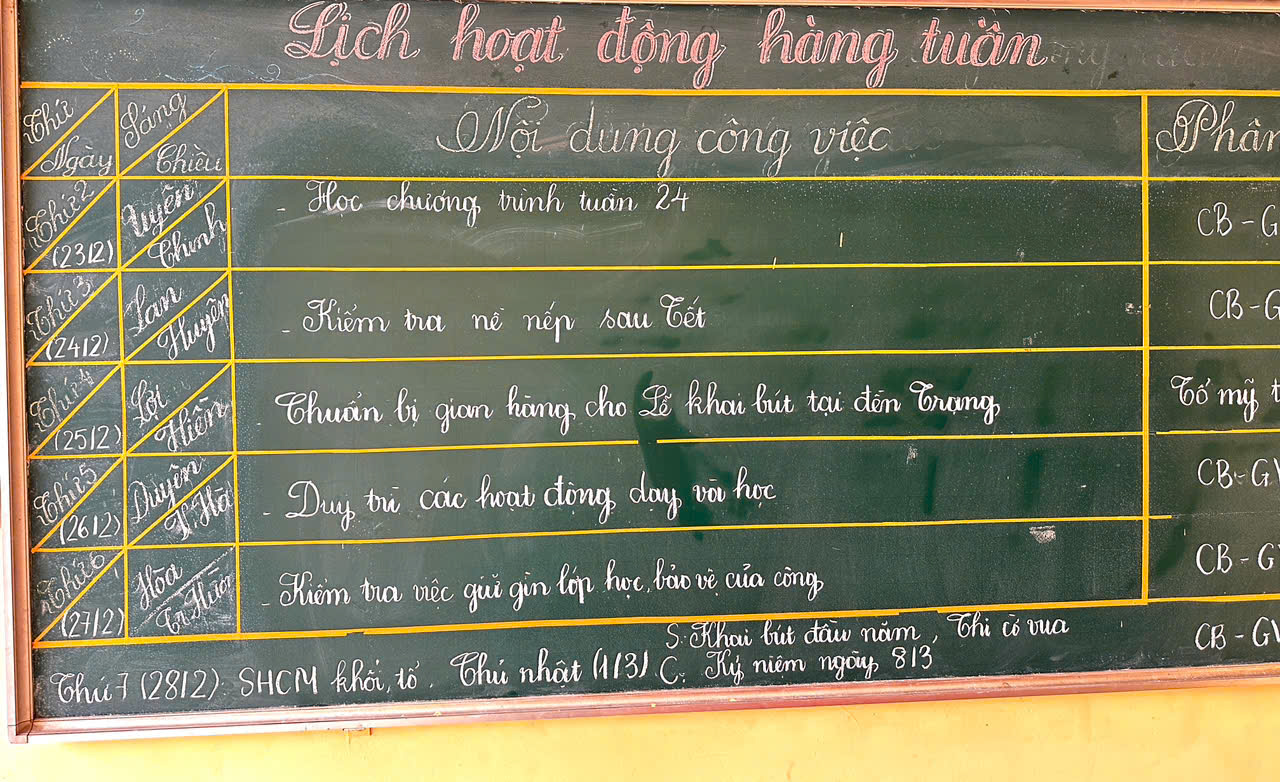 Lịch hoạt động hàng tuần
Thứ Ngày Sáng Chiều Nội dung công việc Phân
Thứ 2 (23/2) Uyên Chinh - Học chương trình tuần 24 CB - G
Thứ 3 (24/2) Lan Huyền - Kiểm tra nề nếp sau Tết CB - G
Thứ 4 (25/2) Lợi Hiền Chuẩn bị gian hàng cho Lễ khai bút tại đền Trạng Tổ mỹ t
Thứ 5 (26/2) Duyên T. Hà - Duy trì các hoạt động dạy và học CB - GV
Thứ 6 (27/2) Hòa - Kiểm tra việc giữ gìn lớp học, bảo vệ của công CB - G
S: Khai bút đầu năm, Thi cờ vua CB - GV
Thứ 7 (28/2): SHCM khối, tổ. Chủ nhật (1/3) C: Kỷ niệm ngày 8/3